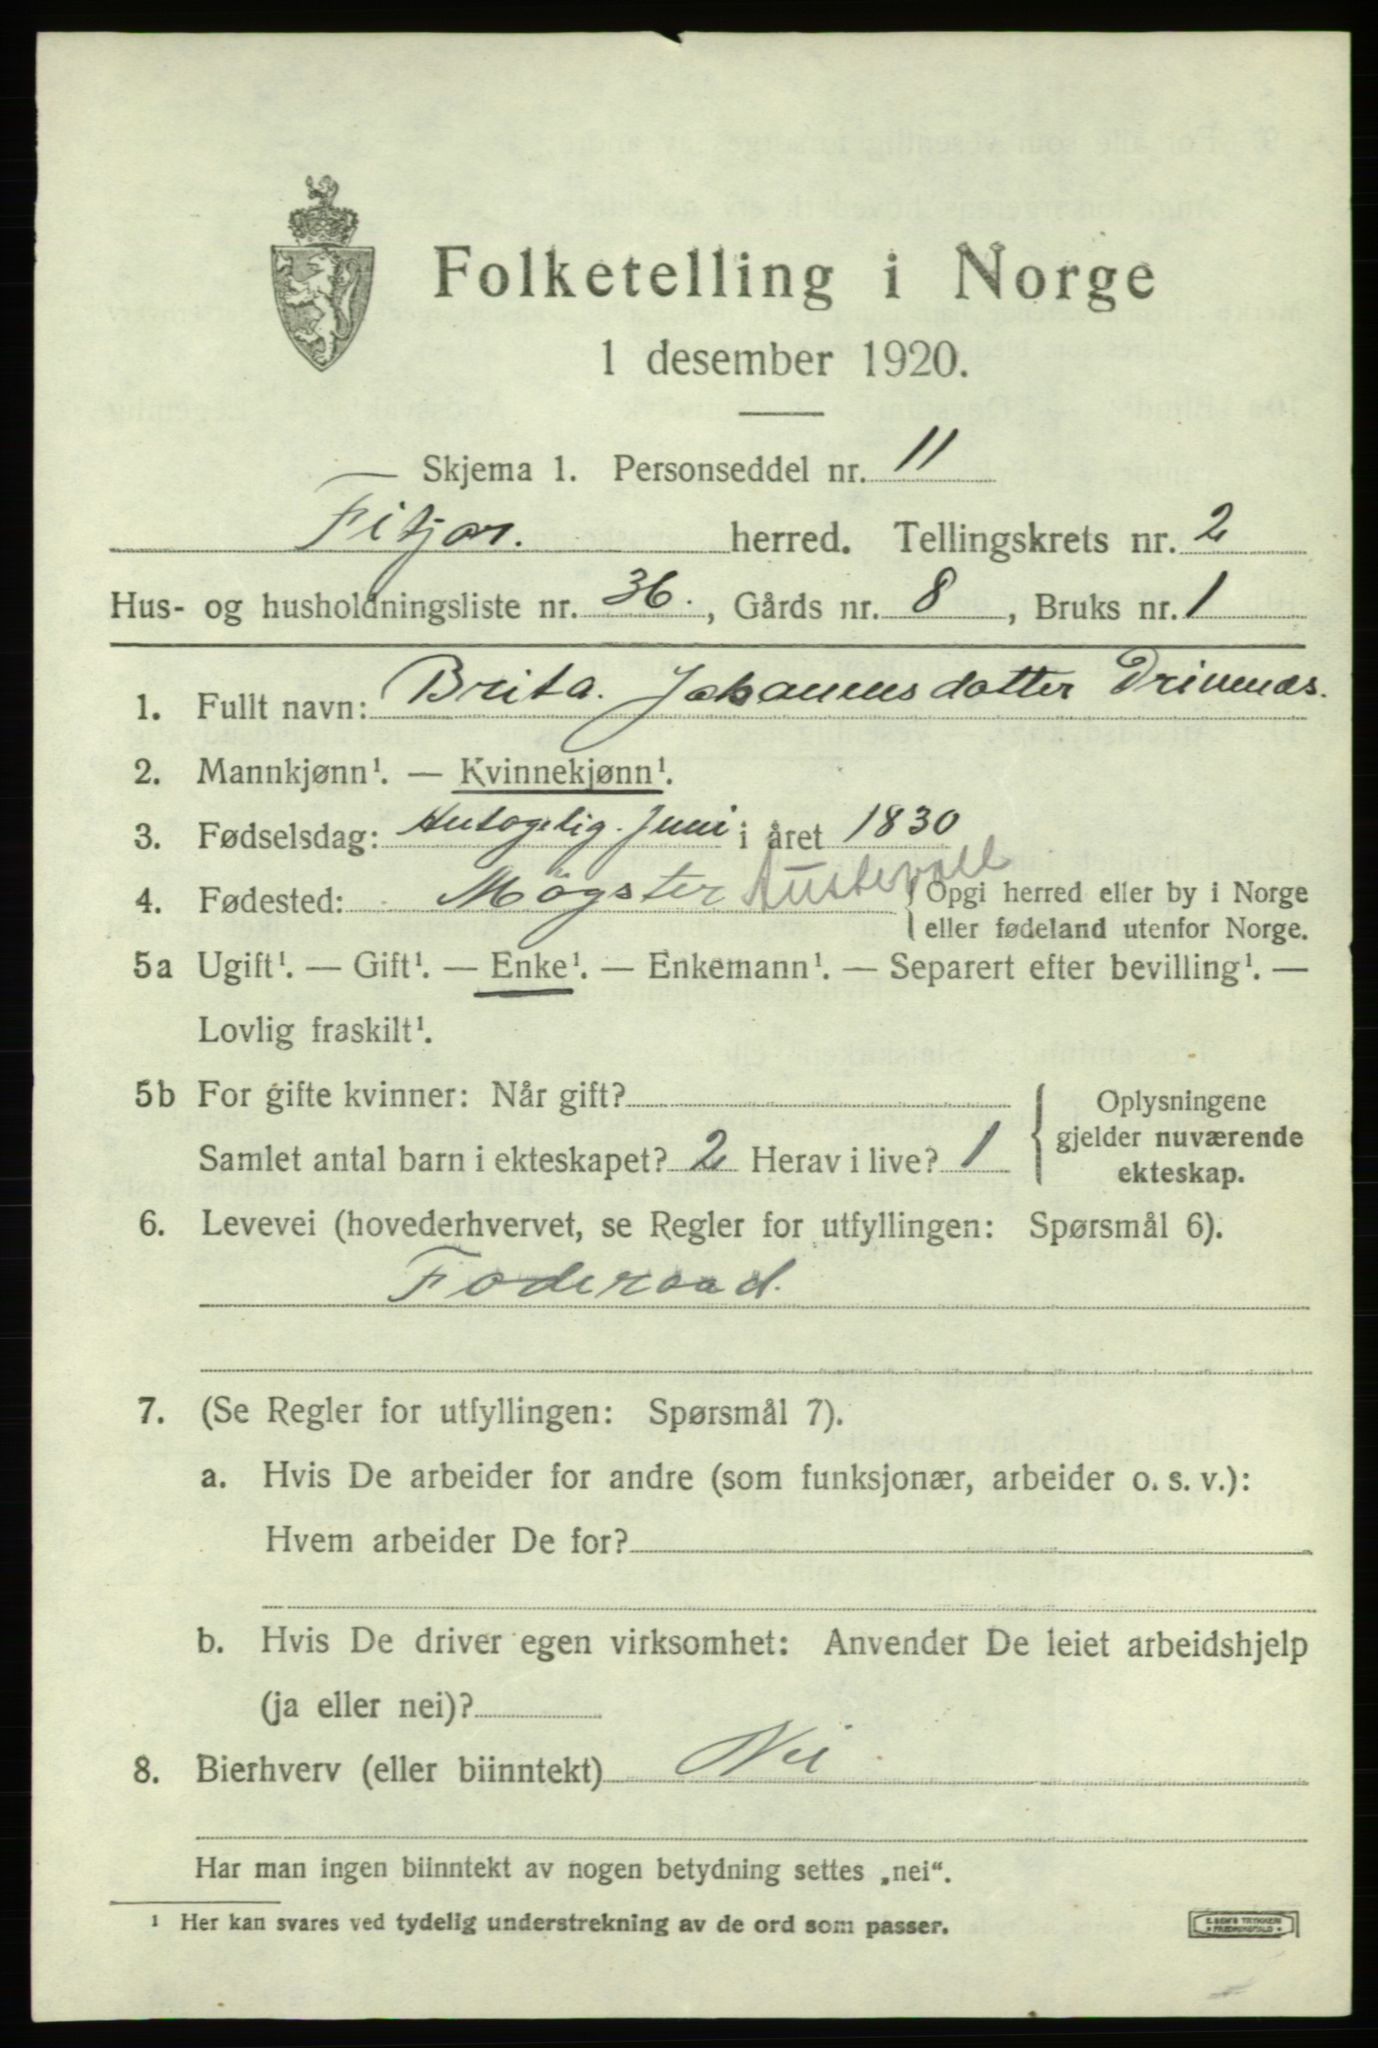 Folketelling i Norge
1 desember 1920.
Skjema 1. Personseddel nr. 11
Fitjar. herred. Tellingskrets nr. 2
Hus- og husholdningsliste nr. 36., Gårds nr. 8, Bruks nr. 1
1. Fullt navn: Brita. Johannesdatter Drivenæs.
2. Mannkjønn¹. — Kvinnekjønn¹.
3. Fødselsdag: Antagelig. Juni i året 1830
4. Fødested: Møgster Austevoll { Opgi herred eller by i Norge
eller fødeland utenfor Norge.
5a Ugift¹. — Gift¹. — Enke¹. — Enkemann¹. — Separert efter bevilling¹. —
Lovlig fraskilt¹.
5b For gifte kvinner: Når gift?
Samlet antal barn i ekteskapet? 2 Herav i live? 1
Oplysningene
gjelder nuværende
ekteskap.
6. Levevei (hovederhvervet, se Regler for utfyllingen: Spørsmål 6).
Foderaad.
7. (Se Regler for utfyllingen: Spørsmål 7).
a. Hvis De arbeider for andre (som funksjonær, arbeider o. s. v.):
Hvem arbeider De for?
b. Hvis De driver egen virksomhet: Anvender De leiet arbeidshjelp
(ja eller nei)?
8. Bierhverv (eller biinntekt) Nei
Har man ingen biinntekt av nogen betydning settes „nei“.
¹ Her kan svares ved tydelig understrekning av de ord som passer.